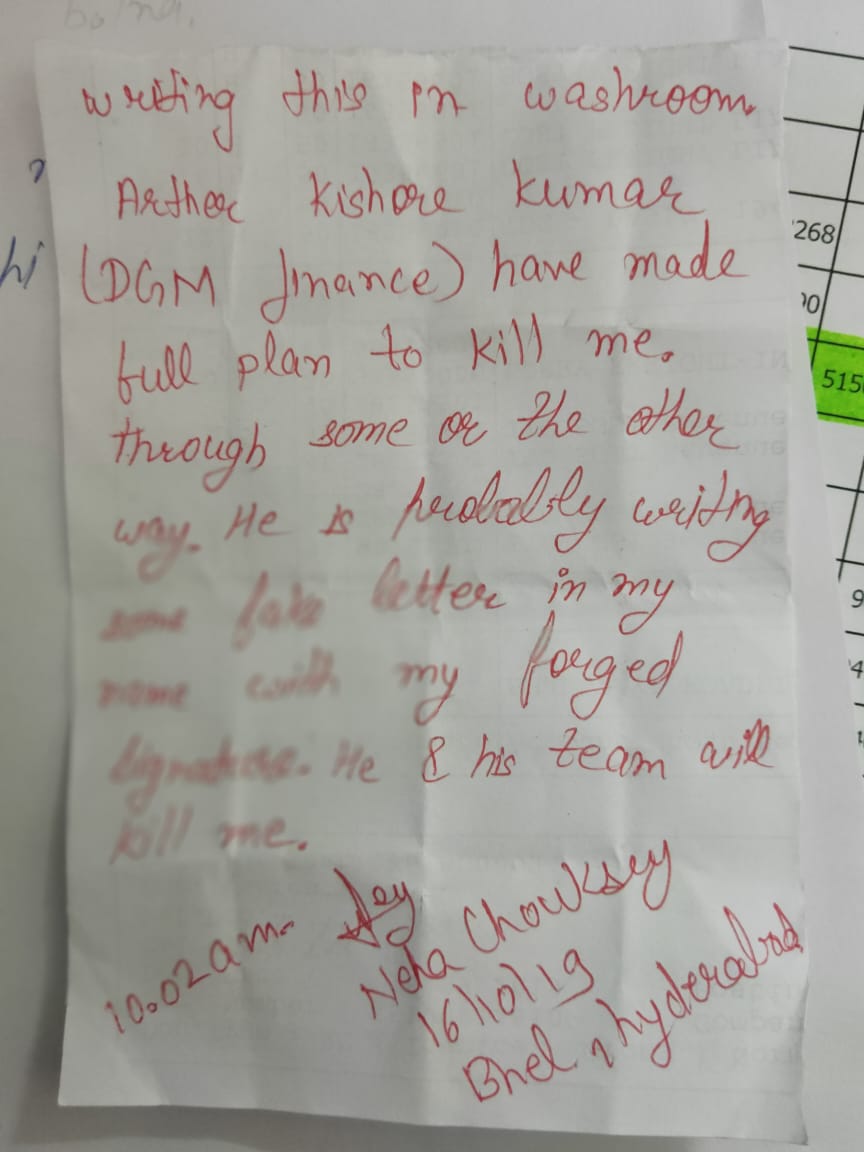 bolna.
writing this in washroom.
Arther Kishore Kumar
(DGM finance) have made
full plan to kill me.
through some or the other
way. He is probably writing
some fake letter in my
name with my forged
signature. He & his team will
kill me.
10.02 am.
Neha Chouksey
16/10/19
Bhel, hyderabad
hi
268
00
515
9
4